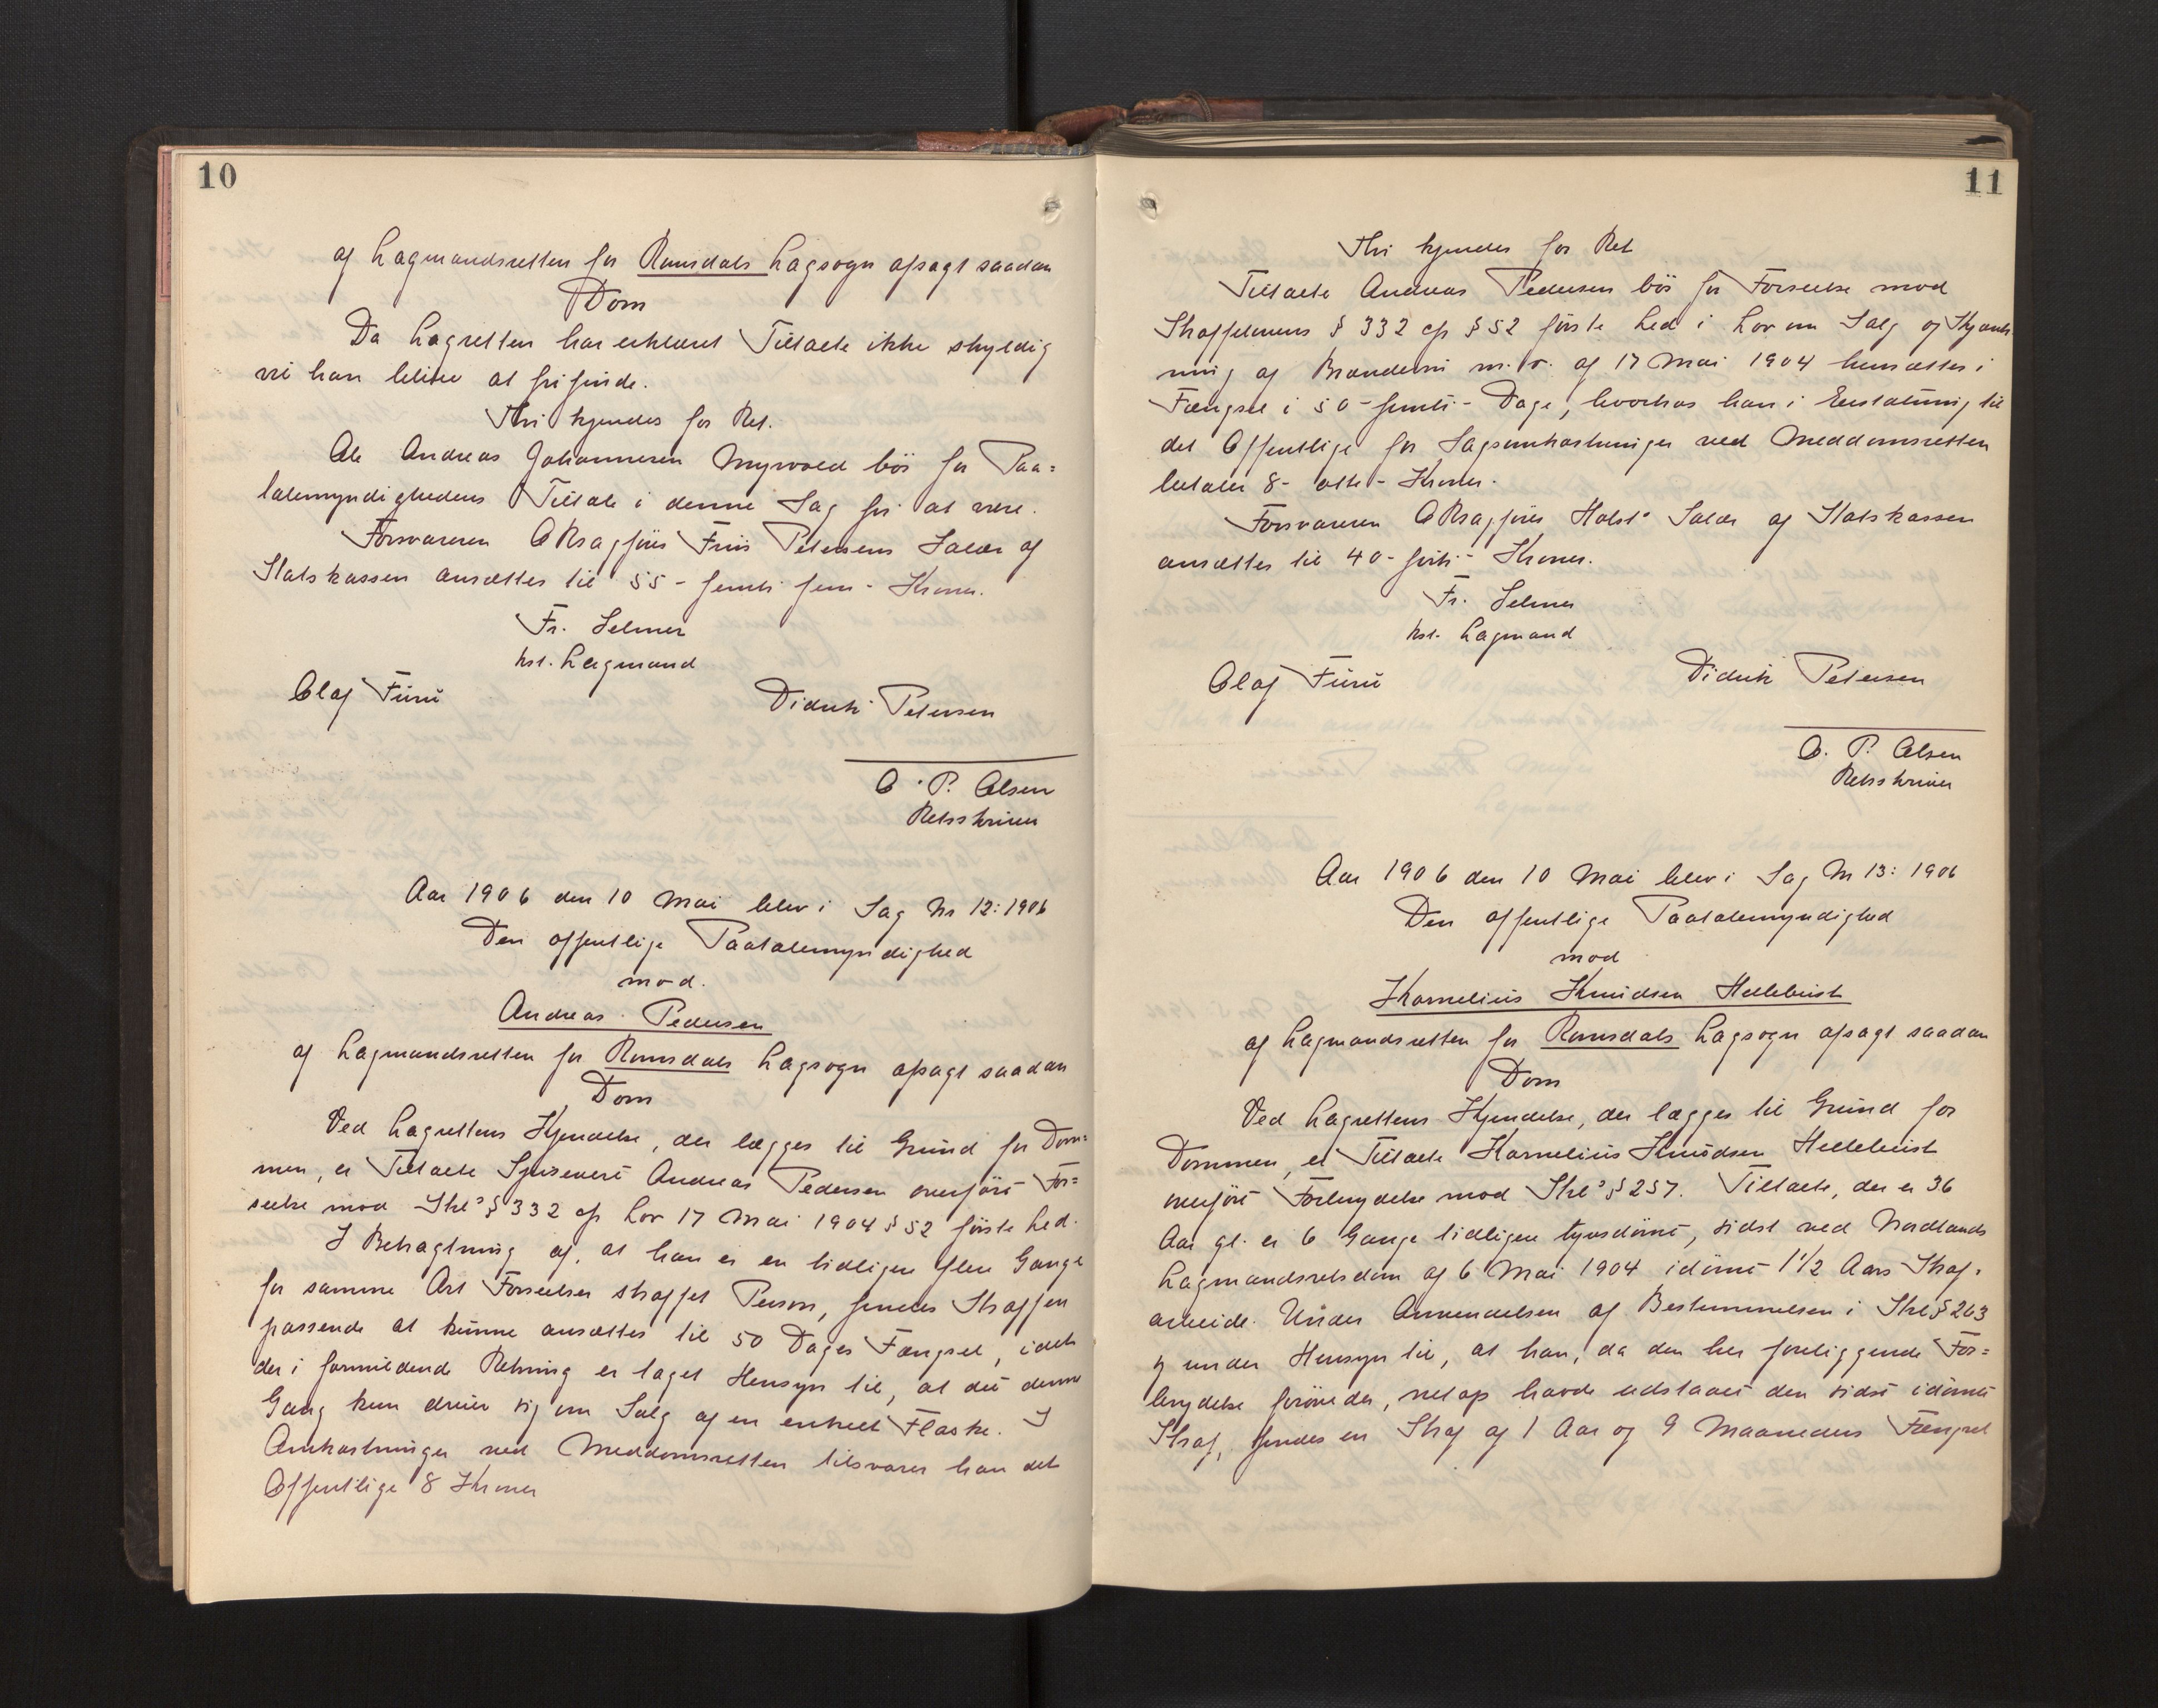 10
af Lagmandsretten for Romsdals Lagsogn afsagt saadan
Dom
Da Lagretten har erklæret Tiltalte ikke skyldig
vil han blive at frifinde.
Thi kjendes for Ret.
Ole Andreas Johannesen Myrvold bör for Paa=
talemyndighedens Tiltale i denne Sag fri at være.
Forsvareren ORsagförer Friis Petersens Salær af
Statskassen ansættes til 55 - femti fem - Kroner.
Fr. Selmer
kst. Lagmand
Olaf Furu
Didrik Petersen
O. P. Olsen
Retsskriver
Aar 1906 den 10 Mai blev i Sag Nr 12: 1906
Den offentlige Paatalemyndighed
mod.
Andreas Pedersen
af Lagmandsretten for Romsdals Lagsogn afsagt saadan
Dom
Ved Lagrettens Kjendelse, der lægges til Grund for Dom=
men, er Tiltalte Spisevert Andreas Pedersen overfört For=
seelse mod Strl's § 332 cfr Lov 17 Mai 1904 § 52 förste Led.
I Betragtning af, at han er en tidligere flere Gange
for samme Art Forseelser straffet Person, findes Straffen
passende at kunne ansættes til 50 Dages Fængsel, idet
der i formildende Retning er taget Hensyn til, at det denne
Gang kun dreier sig om Salg af en enkelt Flaske. I
Omkostninger ved Meddomsretten tilsvarer han det
Offentlige 8 Kroner
11
Thi kjendes for Ret
Tiltalte Andreas Pedersen bör for Forseelse mod
Straffelovens § 332 cfr § 52 förste Led i Lov om Salg og Skjænk
ning af Brændevin m. v. af 17 Mai 1904 hensættes i
Fængsel i 50 - femti - Dage, hvorhos han i Erstatning til
det Offentlige for Sagsomkostninger ved Meddomsretten
betaler 8 - otte - Kroner.
Forsvareren ORsagförer Holst's Salær af Statskassen
ansættes til 40 - förti - Kroner.
Fr. Selmer
kst. Lagmand
Olaf Furu
Didrik Petersen
O. P. Olsen
Retsskriver
Aar 1906 den 10 Mai blev i Sag Nr 13: 1906
Den offentlige Paatalemyndighed
mod
Kornelius Knudsen Hellebust
af Lagmandsretten for Romsdals Lagsogn afsagt saadan
Dom
Ved Lagrettens Kjendelse, der lægges til Grund for
Dommen, er Tiltalte Kornelius Knudsen Hellebust
overfört Forbrydelse mod Strl's § 257. Tiltalte, der er 36
Aar gl. er 6 Gange tidligere tyvsdömt, sidst ved Nordlands
Lagmandsretsdom af 6 Mai 1904 idömt 1 1/2 Aars Straf=
arbeide. Under Anvendelsen af Bestemmelsen i Strl § 263
og under Hensyn til, at han, da den her foreliggende For=
brydelse forövedes, netop havde udstaaet den sidst idömte
Straf, findes en Straf af 1 Aar og 9 Maaneders Fængsel